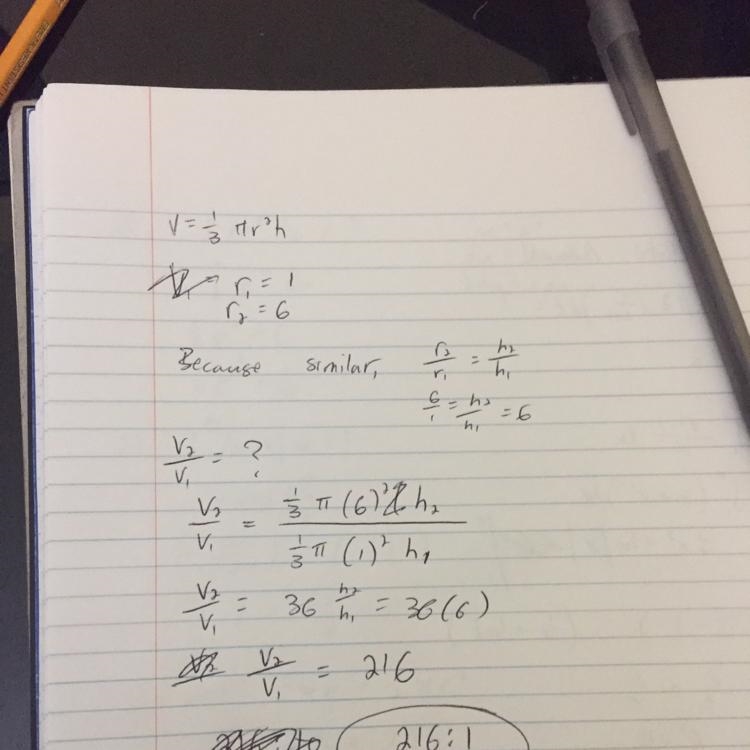 V = 1/3 πr²h
r₁ = 1
r₂ = 6
Because similar, r₂/r₁ = h₂/h₁
6/1 = h₂/h₁ = 6
V₂/V₁ = ?
V₂/V₁ = 1/3 π (6)² h₂ / 1/3 π (1)² h₁
V₂/V₁ = 36 h₂/h₁ = 36(6)
V₂/V₁ = 216
216:1